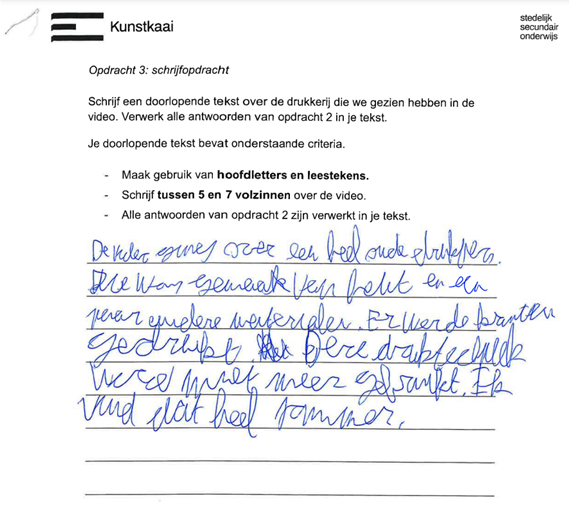 Kunstkaai
stedelijk
secundair
onderwijs
Opdracht 3: schrijfopdracht
Schrijf een doorlopende tekst over de drukkerij die we gezien hebben in de
video. Verwerk alle antwoorden van opdracht 2 in je tekst.
Je doorlopende tekst bevat onderstaande criteria.
- Maak gebruik van hoofdletters en leestekens.
- Schrijf tussen 5 en 7 volzinnen over de video.
- Alle antwoorden van opdracht 2 zijn verwerkt in je tekst.
De video ging over een heel oude drukpers.
Die was gemaakt van en een
paar andere materialen. Er werde kranten
gedrukt. Deze druktechniek
werd niet meer gebruikt. Ik
vind dat heel jammer.